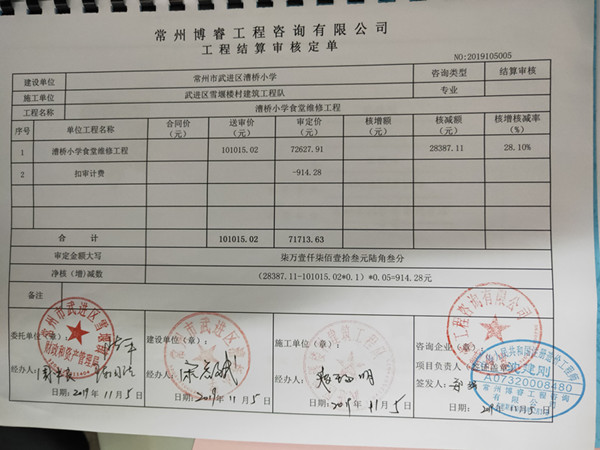 常州博睿工程咨询有限公司
工程结算审核定单
NO:2019105005
建设单位 常州市武进区漕桥小学 咨询类型 结算审核
施工单位 武进区雪堰楼村建筑工程队 专业
工程名称 漕桥小学食堂维修工程
序号 单位工程名称 合同价（元） 送审价（元） 审定价（元） 核增额（元） 核减额（元） 核增核减率（%）
1 漕桥小学食堂维修工程 101015.02 72627.91 28387.11 28.10%
2 扣审计费 -914.28
合计 101015.02 71713.63
审定金额大写 柒万壹仟柒佰壹拾叁元陆角叁分
净核（增)减数 (28387.11-101015.02*0.1）*0.05=914.28元
备注
委托单位（章）： 建设单位（章）： 施工单位（章）： 咨询企业（章）：
项目负责人
经办人： 经办人： 经办人： 签发人：
日期：2019年11月5日 日期：2019年11月5日 日期：年月日 日期：2019年11月5日
常州市武进区雪堰镇
财政和资产管理局
工程咨询有限公司
A07320008480
常州博睿工程咨询
有限公司